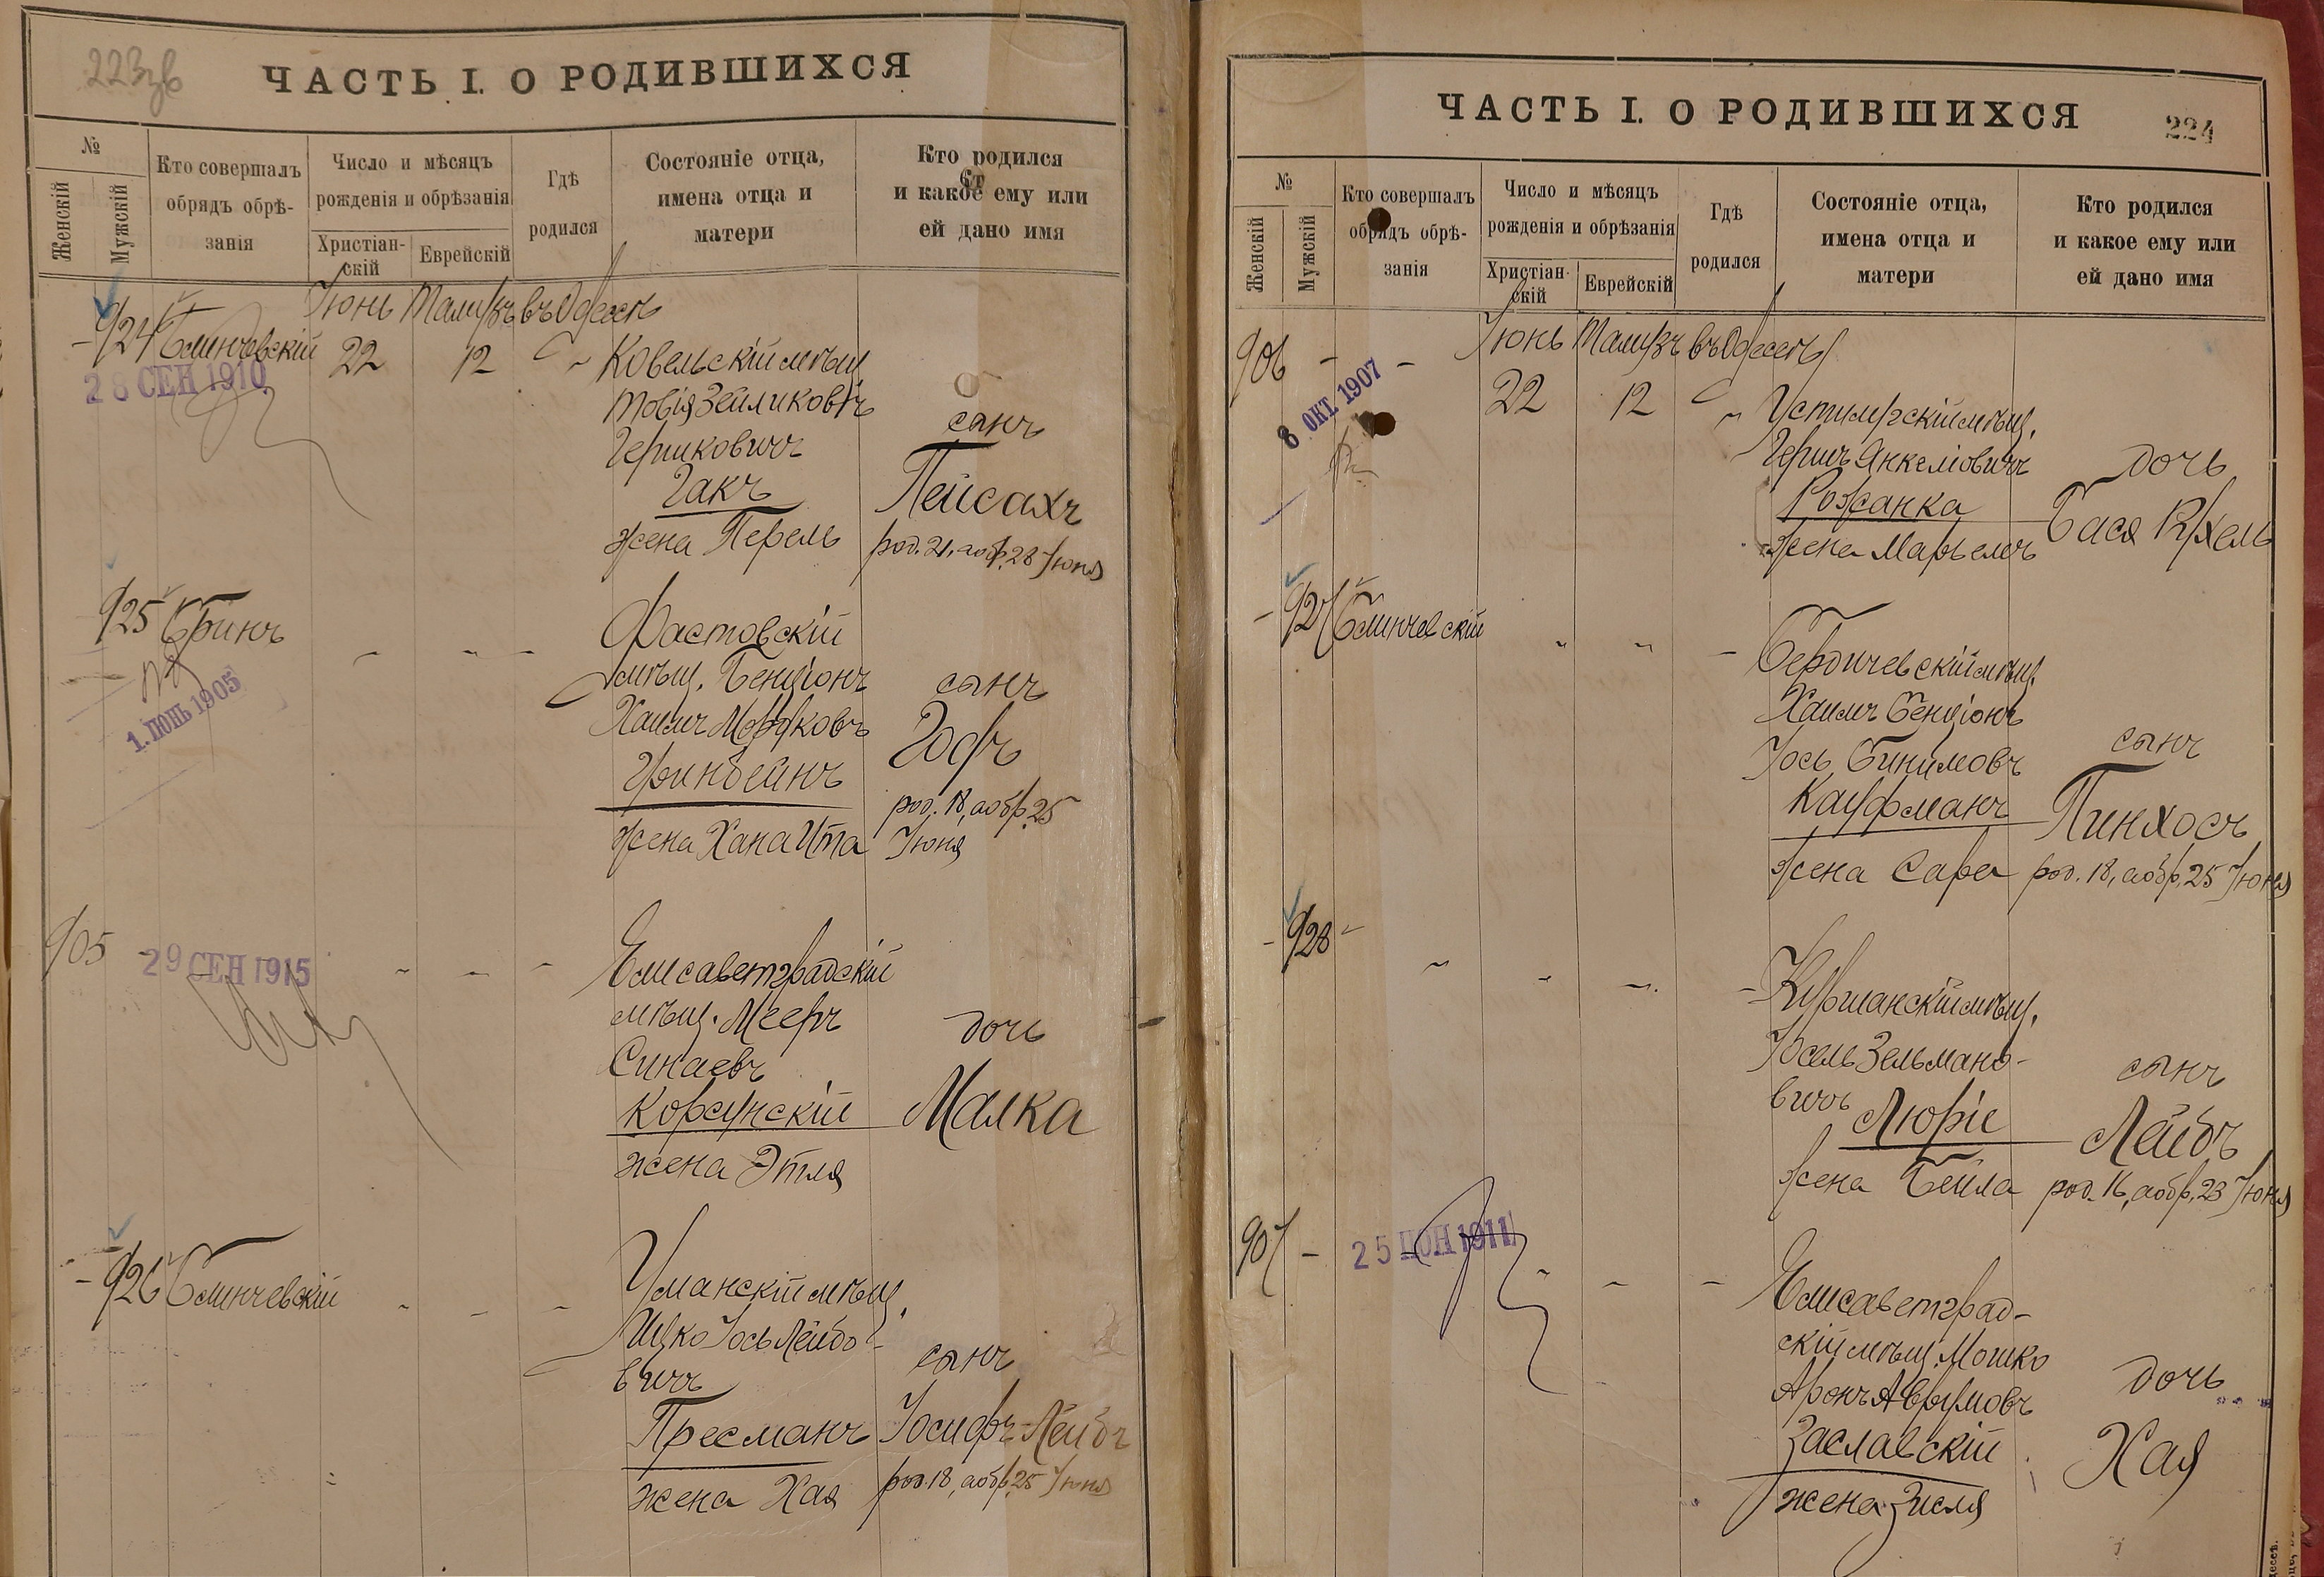 223зв
ЧАСТЬ I. О РОДИВШИХСЯ
№
Женскій
Мужскій
Кто совершалъ
обрядъ обрѣ-
занія
Число и мѣсяцъ
рожденія и обрѣзанія
Христіан-
скій
Еврейскій
Гдѣ
родился
Состояніе отца,
имена отца и
матери
Кто родился
и какое ему или
ей дано имя
Іюнь Тамузъ въ Одессѣ
924 Блинчевскій 22 12 Ковельскій мѣщ.
28 СЕН 1910
Товія Зейликовъ
Гершковичъ
Гакъ
жена Перель
сынъ
Пейсахъ
род. 21, а обр. 28 Іюня
925 Бринъ
1. ІЮНЬ 1905
Фастовскій
мѣщ. Бенціонъ
Хаимъ Мордковъ
Гринбейнъ
жена Хана Ита
сынъ
род. 18, а обр. 25
Іюня
905
29 СЕН 1915
Елисаветградскій
мѣщ. Мееръ
Синаевъ
Корсунскій
жена Этля
дочь
Малка
926 Блинчевскій
Уманскій мѣщ.
Ицко Іось Лейбо-
вичъ
Пресманъ
жена Хая
сынъ
Іосифъ-Лейбъ
род. 18, а обр. 25 Іюня
ЧАСТЬ I. О РОДИВШИХСЯ
224
№
Женскій
Мужскій
Кто совершалъ
обрядъ обрѣ-
занія
Число и мѣсяцъ
рожденія и обрѣзанія
Христіан-
скій
Еврейскій
Гдѣ
родился
Состояніе отца,
имена отца и
матери
Кто родился
и какое ему или
ей дано имя
Іюнь Тамузъ въ Одессѣ
906 22 12
8 ОКТ. 1907
мѣщ.
Гершъ Янкелiовичъ
Рожанка
жена Марьемъ
дочь
Бася Рухель
927 Блинчевскій
Бердичевскій мѣщ.
Хаимъ Бенціонъ
Іось Бинимовъ
Кауфманъ
жена Сара
сынъ
Пинхосъ
род. 18, а обр. 25 Іюня
928
мѣщ.
Іосель Зельмано-
вичъ
Люріе
жена Бейла
сынъ
Лейбъ
род. 16, а обр. 23 Іюня
907
25 ІЮН 1911
Елисаветград-
скій мѣщ. Мошко
Аронъ Аврумовъ
Заславскій
жена Зисля
дочь
Хая